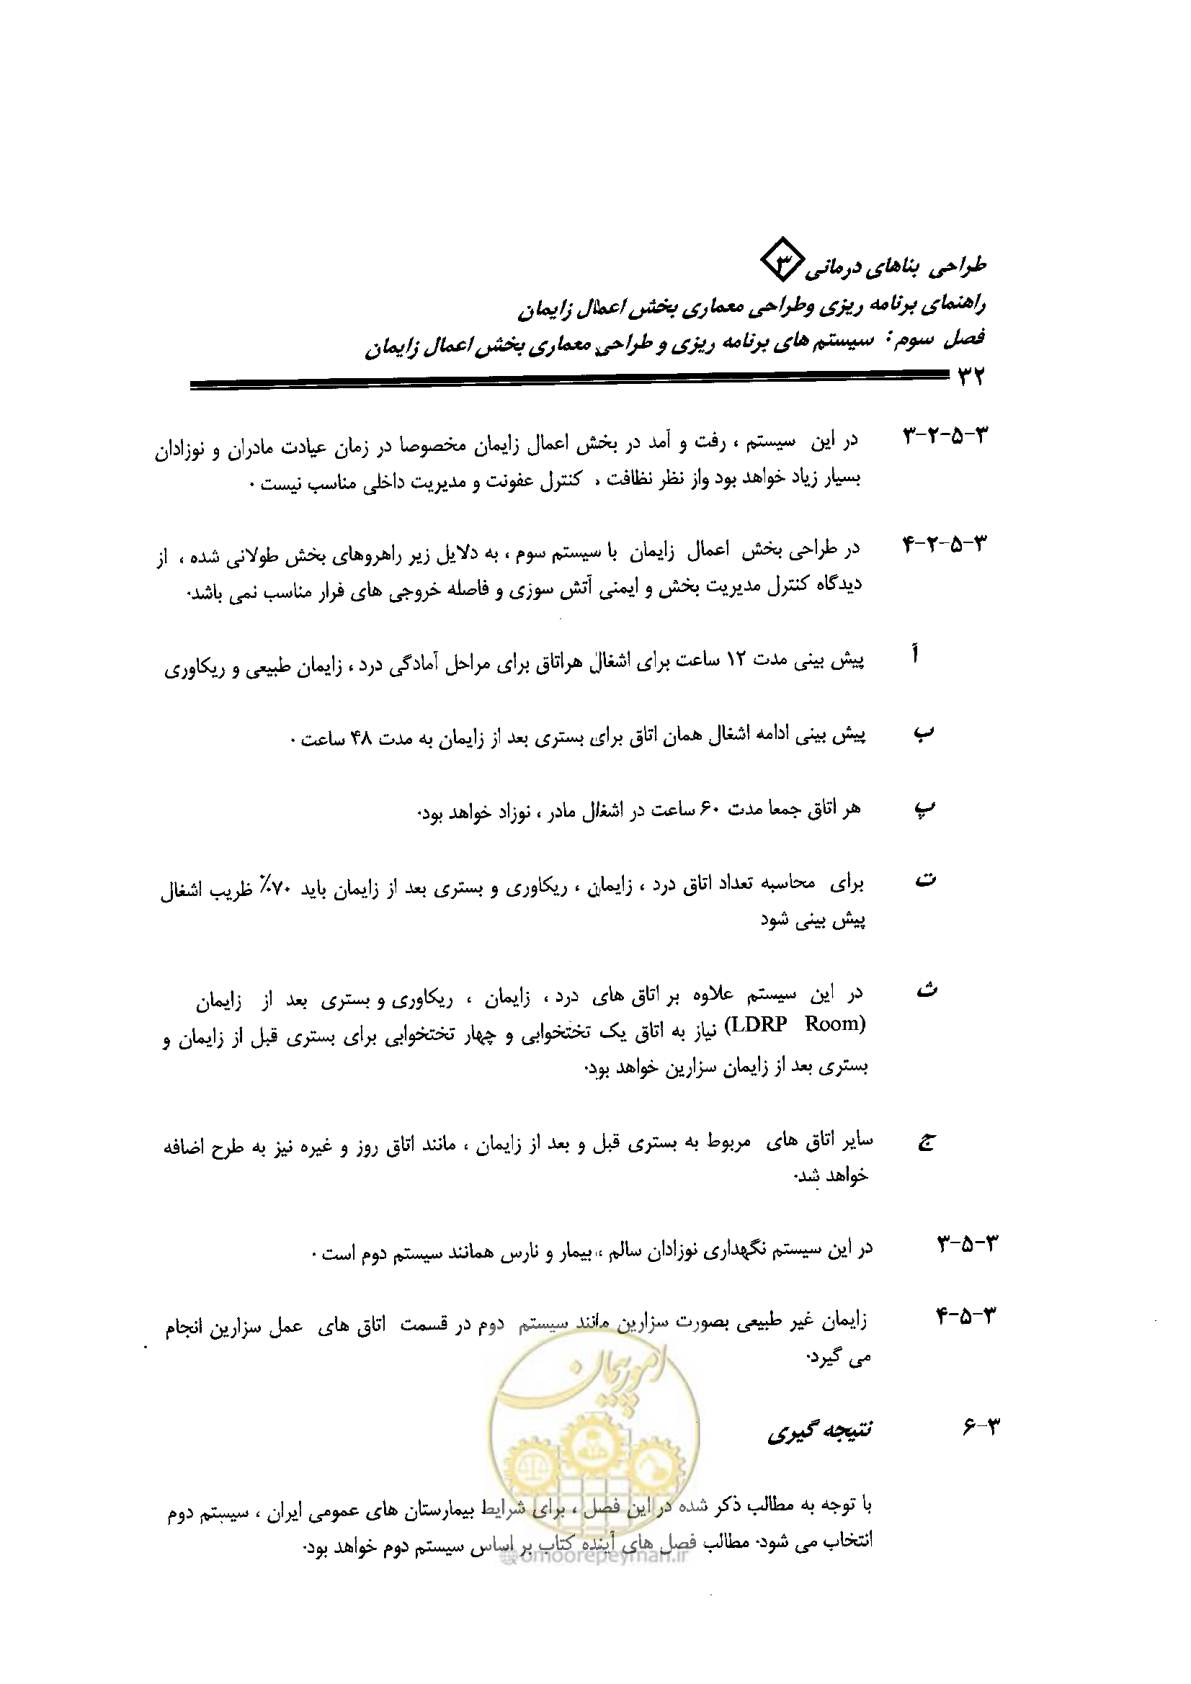 طراحی بناهای درمانی ۳
راهنمای برنامه ریزی وطراحی معماری بخش اعمال زایمان
فصل سوم : سیستم های برنامه ریزی و طراحی معماری بخش اعمال زایمان
۳۲
۳-۵-۲-۳ در این سیستم ، رفت و آمد در بخش اعمال زایمان مخصوصا در زمان عیادت مادران و نوزادان
بسیار زیاد خواهد بود واز نظر نظافت ، کنترل عفونت و مدیریت داخلی مناسب نیست .
۳-۵-۲-۴ در طراحی بخش اعمال زایمان با سیستم سوم ، به دلایل زیر راهروهای بخش طولانی شده ، از
دیدگاه کنترل مدیریت بخش و ایمنی آتش سوزی و فاصله خروجی های فرار مناسب نمی باشد.
أ پیش بینی مدت ۱۲ ساعت برای اشغال هراتاق برای مراحل آمادگی درد ، زایمان طبیعی و ریکاوری
ب پیش بینی ادامه اشغال همان اتاق برای بستری بعد از زایمان به مدت ۴۸ ساعت .
پ هر اتاق جمعا مدت ۶۰ ساعت در اشغال مادر ، نوزاد خواهد بود.
ت برای محاسبه تعداد اتاق درد ، زایمان ، ریکاوری و بستری بعد از زایمان باید ۷۰٪ ظریب اشغال
پیش بینی شود
ث در این سیستم علاوه بر اتاق های درد ، زایمان ، ریکاوری و بستری بعد از زایمان
(LDRP Room) نیاز به اتاق یک تختخوابی و چهار تختخوابی برای بستری قبل از زایمان و
بستری بعد از زایمان سزارین خواهد بود.
ج سایر اتاق های مربوط به بستری قبل و بعد از زایمان ، مانند اتاق روز و غیره نیز به طرح اضافه
خواهد شد.
۳-۵-۳ در این سیستم نگهداری نوزادان سالم ، بیمار و نارس همانند سیستم دوم است .
۳-۵-۴ زایمان غیر طبیعی بصورت سزارین مانند سیستم دوم در قسمت اتاق های عمل سزارین انجام
می گیرد.
۳-۶ نتیجه گیری
با توجه به مطالب ذکر شده در این فصل ، برای شرایط بیمارستان های عمومی ایران ، سیستم دوم
انتخاب می شود. مطالب فصل های آینده کتاب بر اساس سیستم دوم خواهد بود.
امور پیمان
omoorepeyman.ir